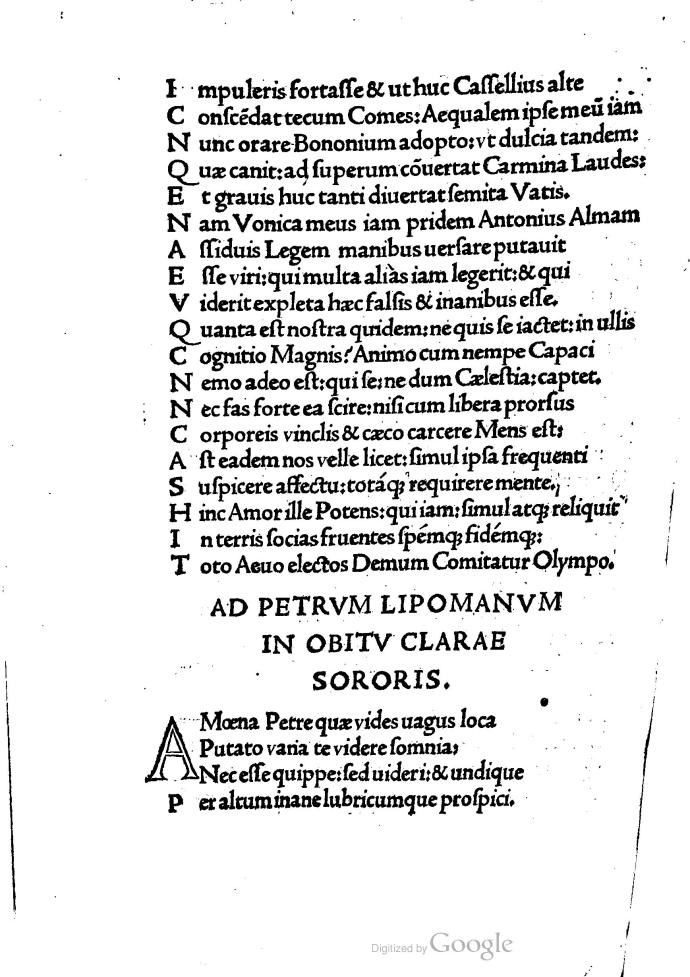 I mpuleris fortaſſe & ut huc Caſſellius alte
C onſcẽdat tecum Comes: Aequalem ipſe meũ iam
N unc orare Bononium adopto: vt dulcia tandem:
Q uæ canit: ad ſuperum cõuertat Carmina Laudes:
E t grauis huc tanti diuertat ſemita Vatis.
N am Vonica meus iam pridem Antonius Almam
A ſſiduis Legem manibus uerſare putauit
E ſſe viri: qui multa aliàs iam legerit: & qui
V iderit expleta hæc falſis & inanibus eſſe.
Q uanta eſt noſtra quidem: ne quis ſe iactet: in ullis
C ognitio Magnis? Animo cum nempe Capaci
N emo adeo eſt: qui ſe: ne dum Cæleſtia: captet.
N ec fas forte ea ſcire: niſi cum libera prorſus
C orporeis vinclis & cæco carcere Mens eſt:
A ſt eadem nos velle licet: ſimul ipſa frequenti
S uſpicere affectu: totáqꝫ requirere mente.
H inc Amor ille Potens: qui iam: ſimul atqꝫ reliquit
I n terris ſocias fruentes ſpémqꝫ fidémqꝫ:
T oto Aeuo electos Demum Comitatur Olympo.
AD PETRVM LIPOMANVM
IN OBITV CLARAE
SORORIS.
AMœna Petre quæ vides uagus loca
Putato varia te videre ſomnia;
Nec eſſe quippe: ſed uideri: & undique
P er altum inane lubricumque proſpici.
Digitized by Google